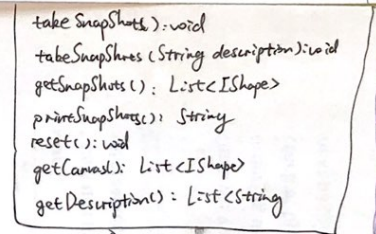 take SnapShots():void
takeSnapShots(String description):void
getSnapShots(): List<IShape>
printSnapShots(): String
reset():void
getCanvas(): List<IShape>
getDescription(): List<String